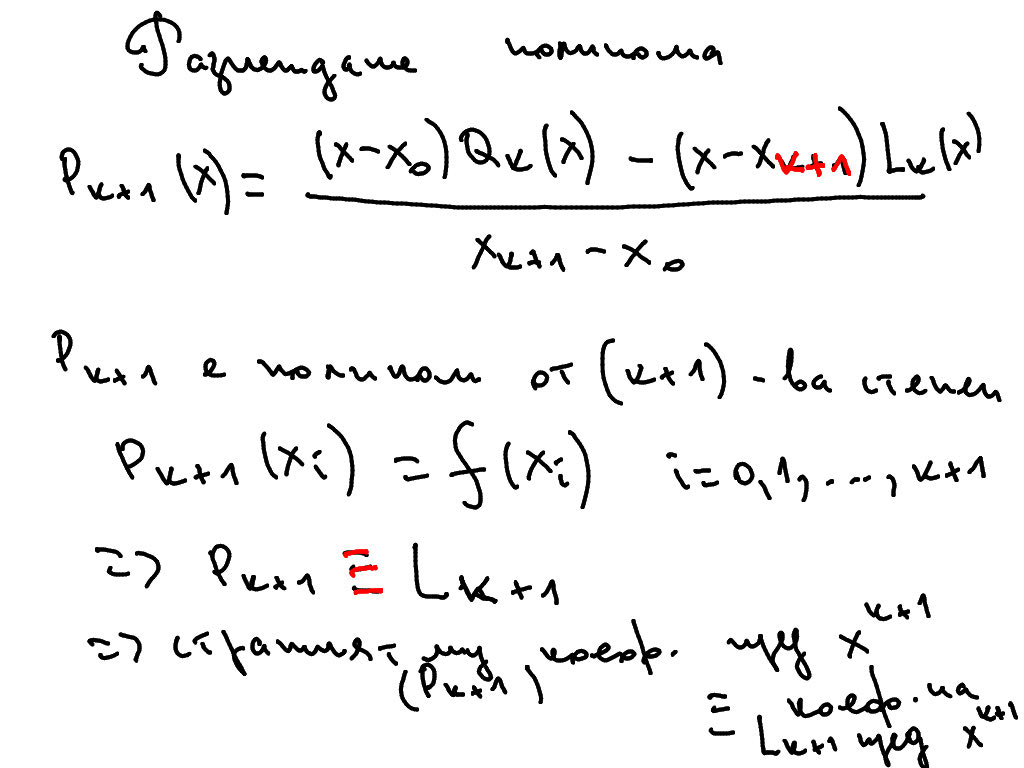 Разглеждаме полинома
P_{k+1}(x) = \frac{(x-x_0)Q_k(x) - (x-x_{k+1})L_k(x)}{x_{k+1} - x_0}
P_{k+1} е полином от (k+1)-ва степен
P_{k+1}(x_i) = f(x_i) i=0,1,...,k+1
=> P_{k+1} ≡ L_{k+1}
=> старшият му коеф. пред x^{k+1}
(P_{k+1})
≡ коеф. на
L_{k+1} пред x^{k+1}